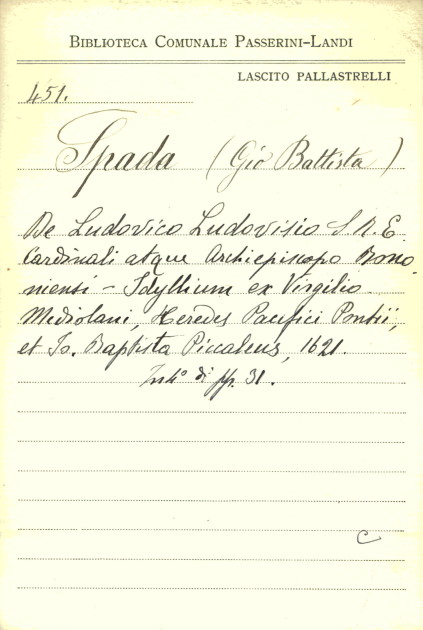 BIBLIOTECA COMUNALE PASSERINI-LANDI
LASCITO PALLASTRELLI
451.
Spada (Gio Battista)
De Ludovico Ludovisio S. R. E.
Cardinali atque Archiepiscopo Bono-
niensi - Idyllium ex Virgilio
Mediolani, Heredes Pacifici Pontii,
et Io. Baptista Piccaleus, 1621.
di pp. 31.
C